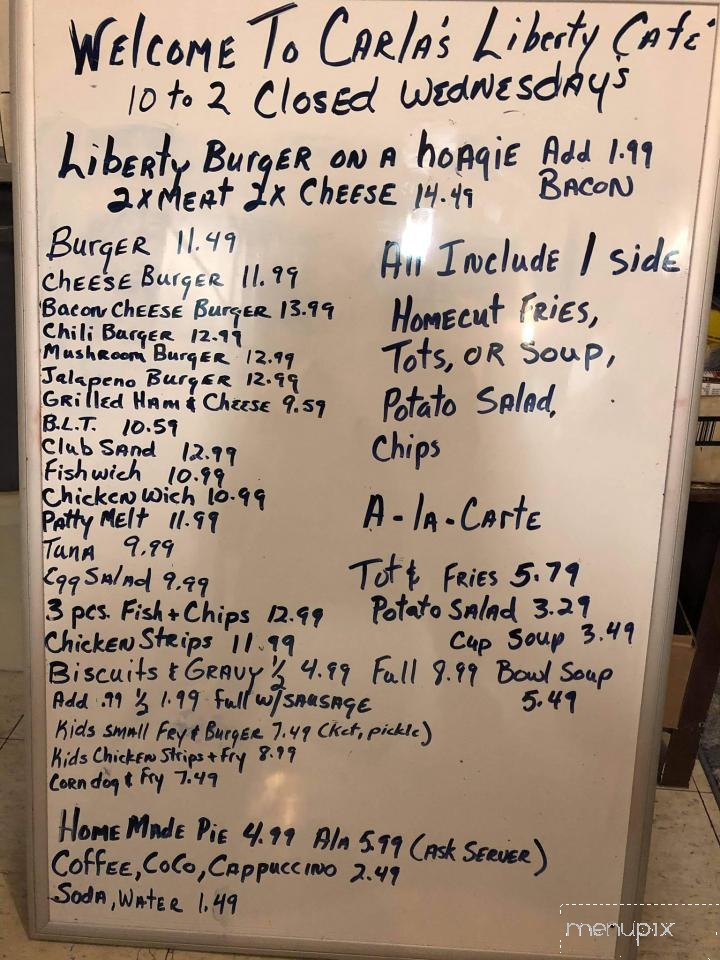 Welcome To Carla's Liberty Cafe
10 to 2 Closed Wednesday's
Liberty Burger on a hoagie Add 1.99
2x Meat 2x Cheese 14.49 Bacon
Burger 11.49
Cheese Burger 11.99
Bacon Cheese Burger 13.99
Chili Burger 12.99
Mushroom Burger 12.99
Jalapeno Burger 12.99
Grilled Ham & Cheese 9.59
B.L.T. 10.59
Club Sand 12.99
Fishwich 10.99
Chicken wich 10.99
Patty Melt 11.99
Tuna 9.99
Egg Salad 9.99
3 pcs. Fish + Chips 12.99
Chicken Strips 11.99
All Include 1 side
Homecut Fries,
Tots, or Soup,
Potato Salad,
Chips
A-la-Carte
Tot & Fries 5.79
Potato Salad 3.29
Cup Soup 3.49
Bowl Soup
5.49
Biscuits & Gravy ½ 4.99 Full 8.99
Add .99 ½ 1.99 full w/sausage
Kids small Fry & Burger 7.49 (Ket, pickle)
Kids Chicken Strips + Fry 8.99
Corn dog & Fry 7.49
Home Made Pie 4.99 Ala 5.99 (Ask Server)
Coffee, CoCo, Cappuccino 2.49
Soda, Water 1.49
menupix